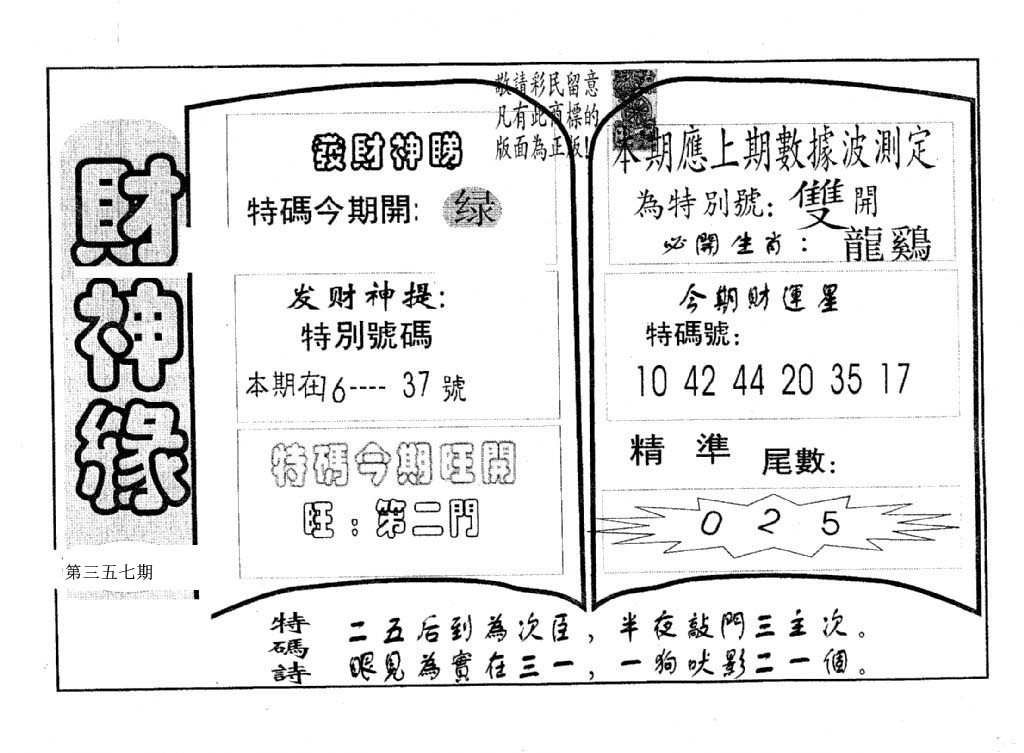 財神緣
第三五七期
敬請彩民留意
凡有此商標的
版面為正版!
發財神睇
特碼今期開: 绿
发财神提:
特別號碼
本期在16---- 37號
特碼今期旺開
旺:第二門
本期應上期數據波測定
為特別號: 雙開
必開生肖: 龍鷄
今期財運星
特碼號:
10 42 44 20 35 17
精準 尾數:
0 2 5
特碼詩
二五后到為次臣,半夜敲門三主次。
眼見為實在三一,一狗吠影二一個。